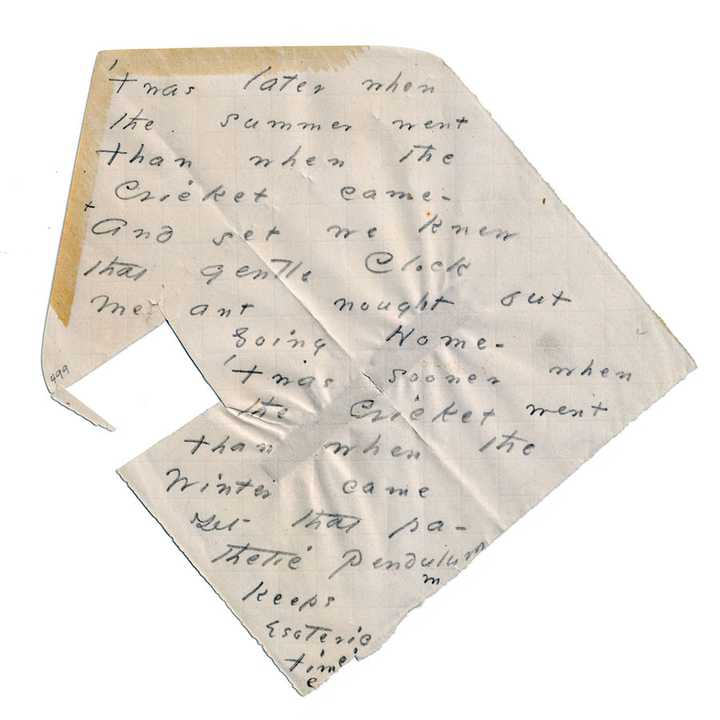 'twas later when
the summer went
than when the
Cricket came -
+
And yet we knew
that gentle Clock
meant nought but
Going Home -
'twas sooner when
the Cricket went
than when the
Winter came
Yet that pa -
thetic Pendulum
m
keeps
Esoteric
time
e
499